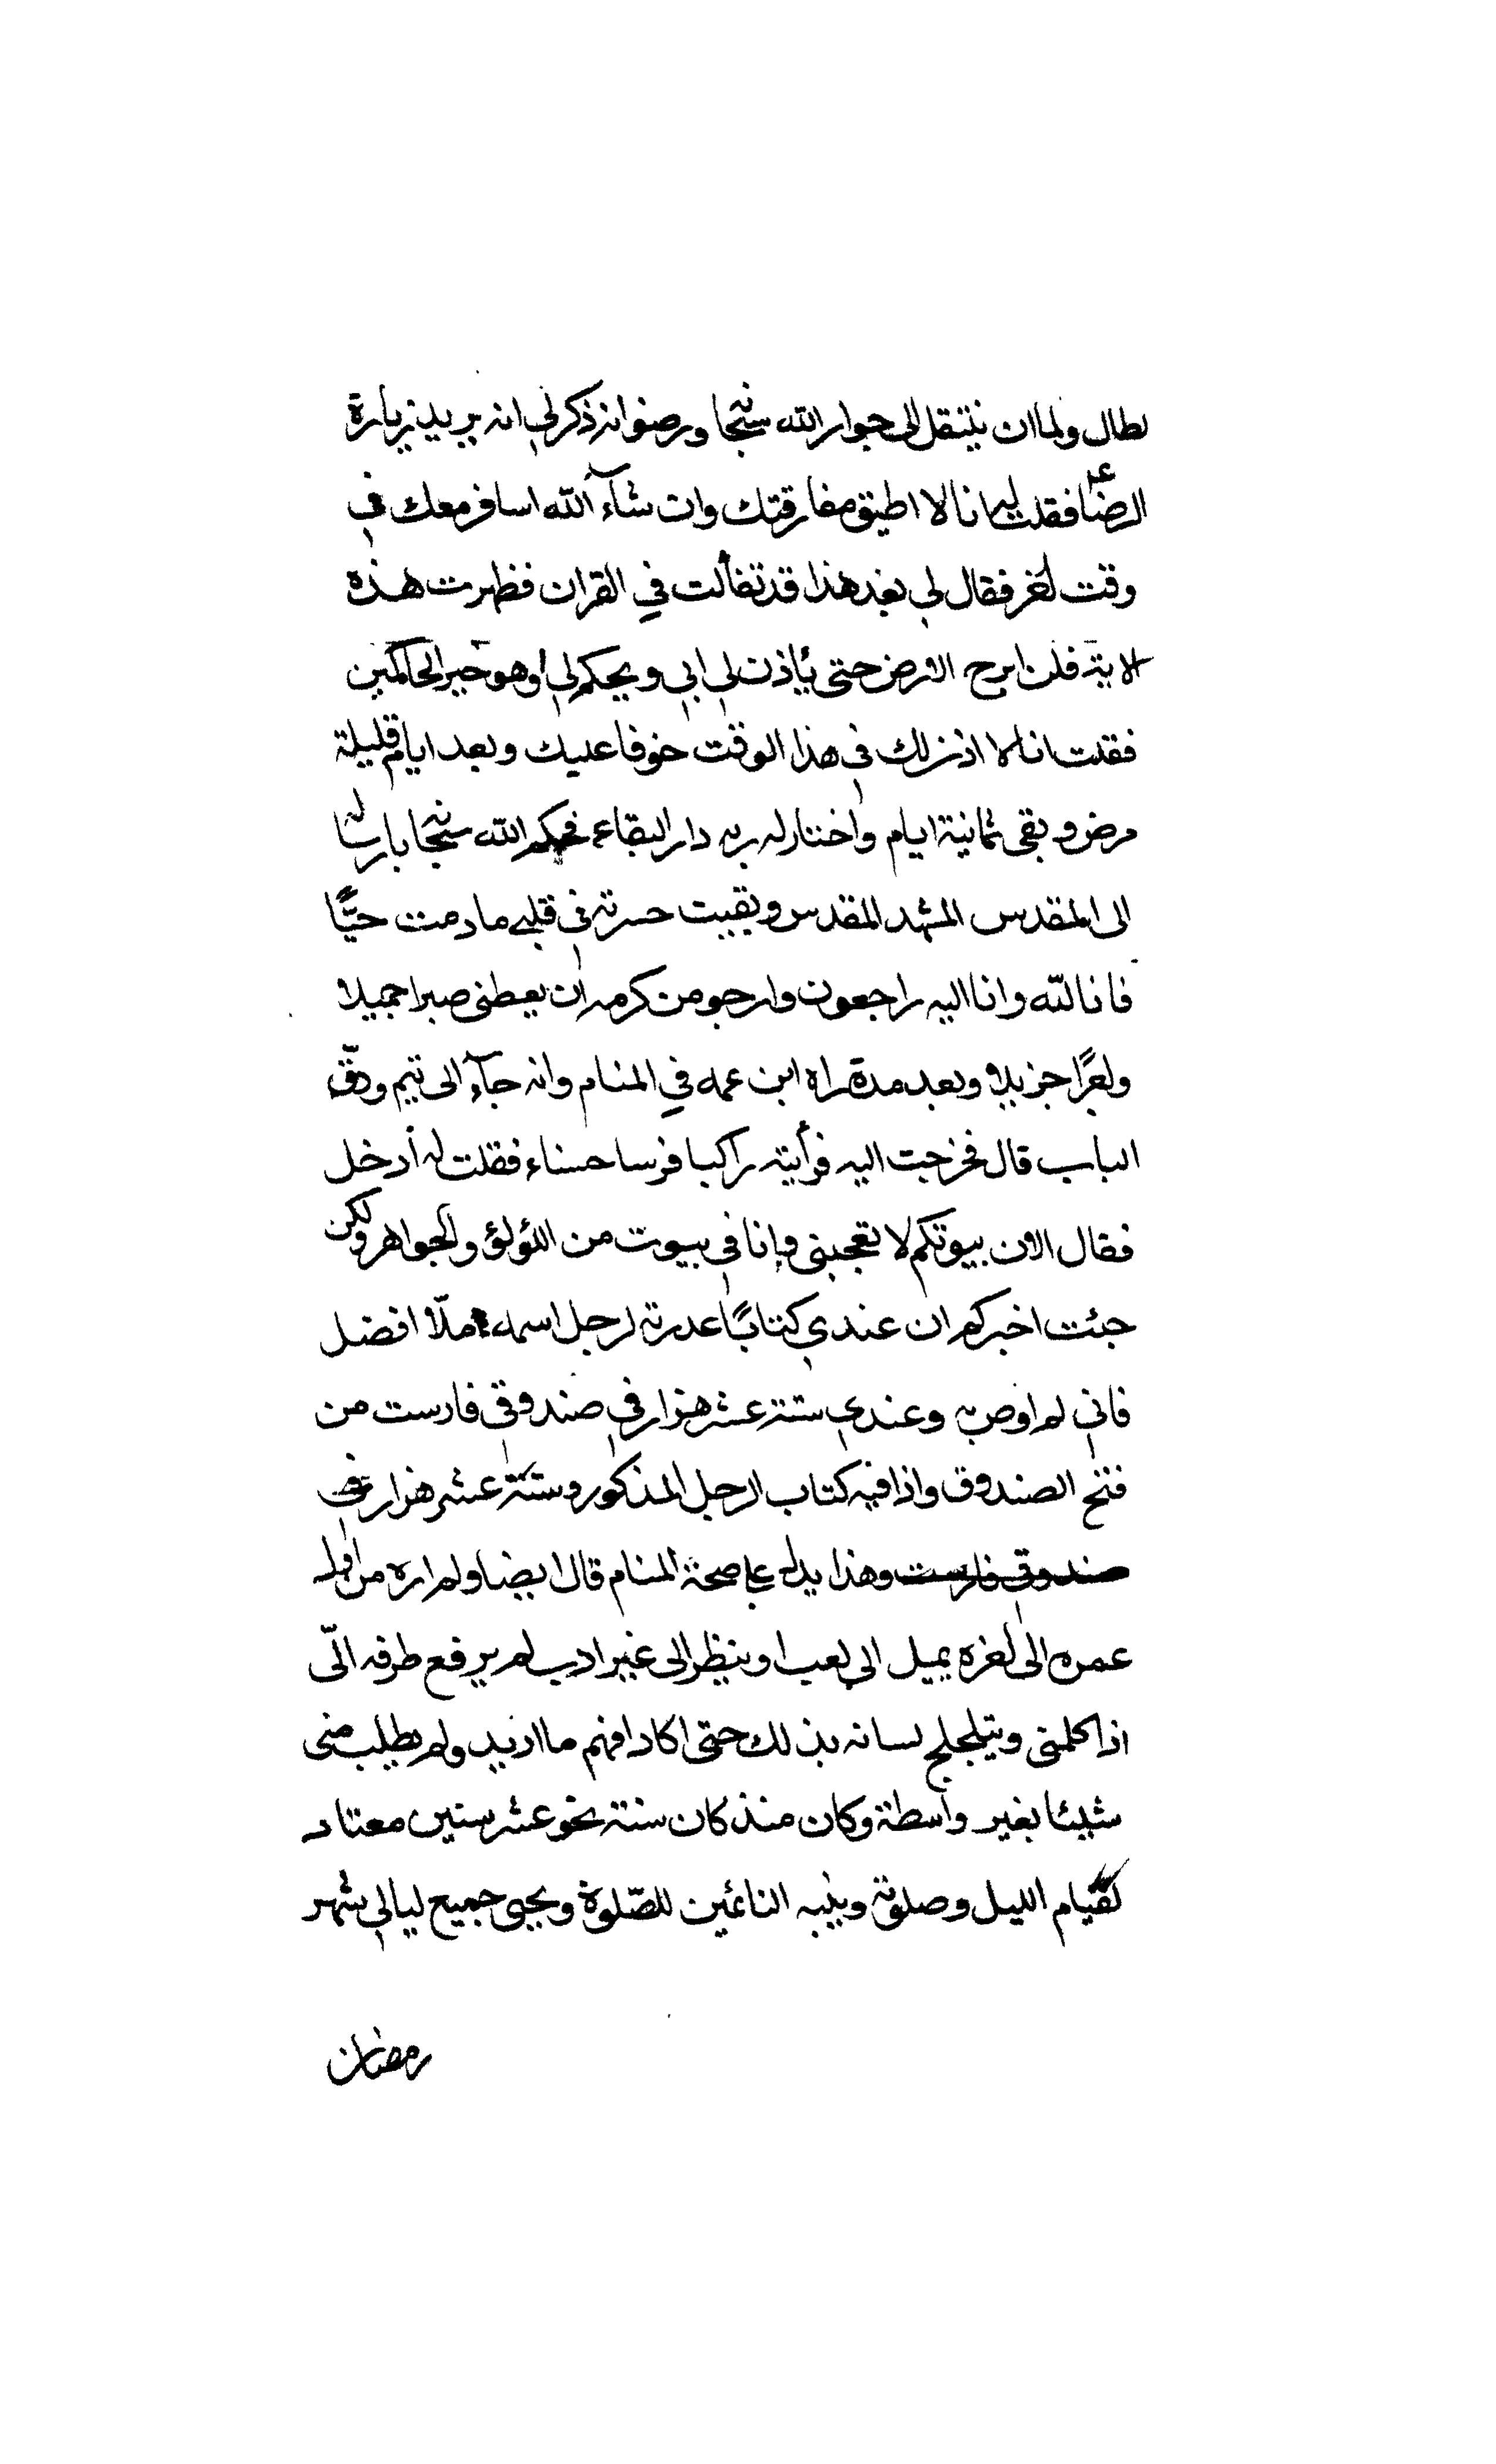 لطال ولما ان ينتقل الى جوار الله سبحا ورضوانه ذكر لي انه يريد زيارة
الرضا ع فقلت له انا لا اطيق مفارقتك وان شآء الله اسافر معك في
وقت لخر فقال لي بعد هذا قد تفألت في القران فظهرت هذه
الاية فلن ابرح الارض حتى يأذن لي ابي ويحكم لي وهو خير الحاكمين
فقلت انا لا اذن لك في هذا الوقت خوفا عليك وبعد ايام قليلة
مرض وبقى ثمانية ايام واختار له ربه دار البقاء فحكم الله سبحا بارساله
الى المقدس المشهد المقدس وبقيت حسرته في قلبي ما دمت حيًّا
فانا لله وانا اليه راجعون وارجو من كرمه ان يعطنى صبرا جميلا
ولجرًا جزيلا وبعد مدة راه ابن عمه في المنام وانه جآء الى بيتهم ودقّ
الباب قال فخرجت اليه فرأيته راكبا فرسا حسناء فقلت له أدخل
فقال الان بيوتكم لا تعجبنى وانا في بيوت من اللؤلؤ والجواهر ولكن
جئت اخبركم ان عندي كتابًا عدرته لرجل اسمه ملّا افضل
فاني لم اوص به وعندي ستة عشر هزار في صندوقي فارست من
فتح الصندوق واذا فيه كتاب الرجل المذكور وستة عشر هزار في
صندوقي فارست وهذا يدل على صحة المنام قال ايضا ولم اره من اول
عمره الى لخره يميل الى لعب او ينظر الى غير ادب لم يرفع طرفه الّى
اذا كلمنى ويتلجلج لسانه بذلك حتى اكاد افهم ما اريد ولم يطلب منى
شيئا بغير واسطة وكان منذ كان سنة نحو عشر سنين معتاد
لقيام الليل وصلوته وينبه النائمين للصّلوة ويحيى جميع ليالي شهر
رمضان